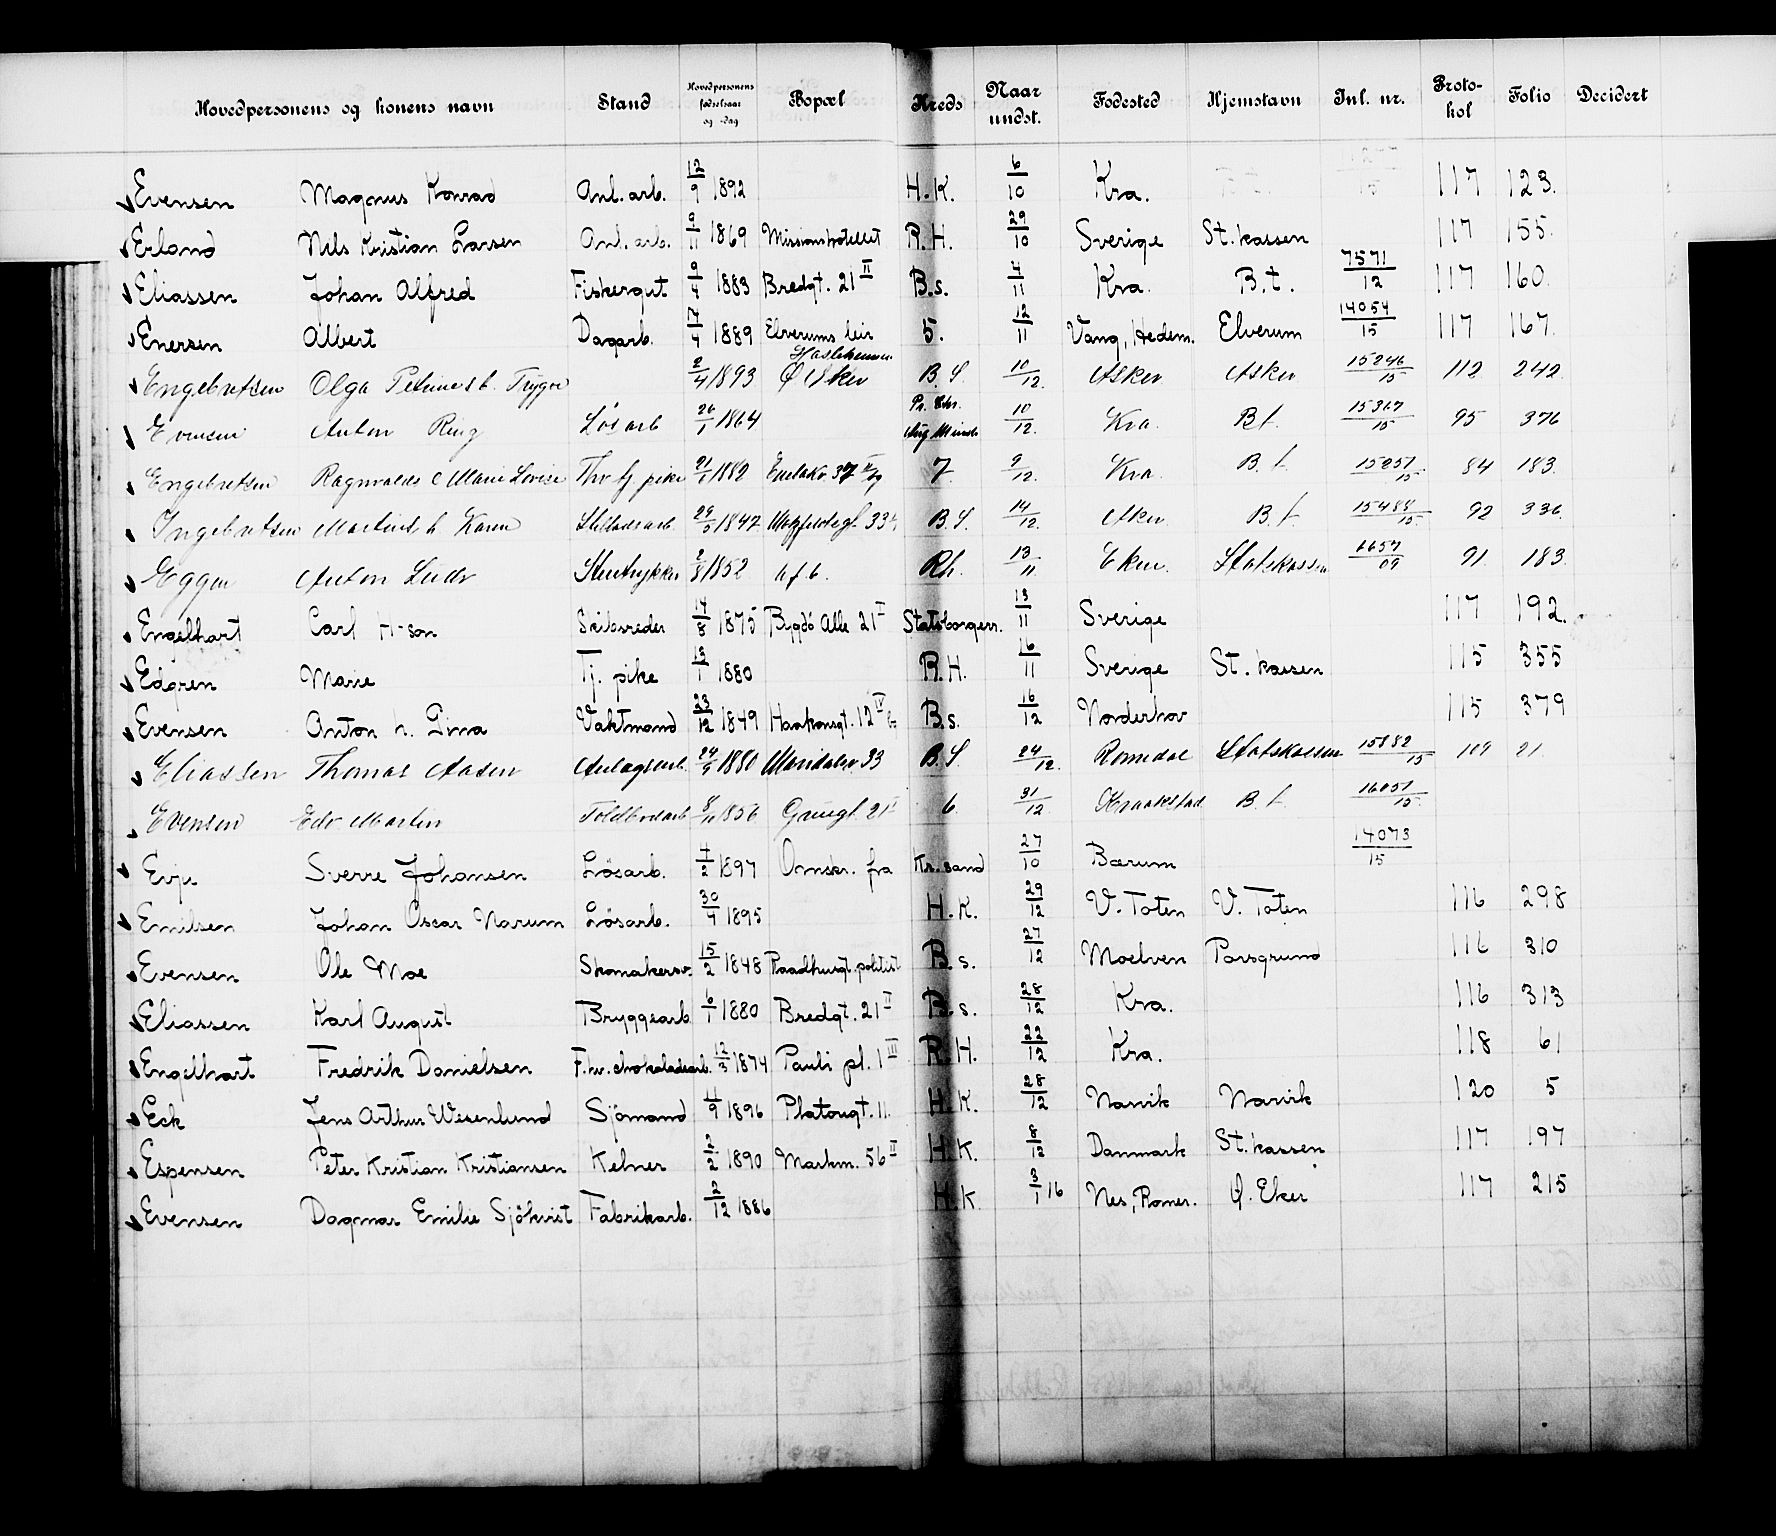 Hovedpersonens og konens navn Stand Hovedpersonens fødselsaar og -dag Bopæl Kreds Naar undst. Fødested Hjemstavn Inl. nr. Proto-kol Folio Decidert
Evensen Magnus Konrad Anl. arb. 12/9 1892 H.K. 6/10 Kra. 117 123.
Erland Nils Kristian Larsen Anl. arb. 9/11 1869 Missionshotellet R.H. 29/10 Sverige St. kassen 117 155.
Eliassen Johan Alfred Fiskergut 9/4 1883 Bredgt. 21 II B.s. 4/11 Kra. B.t. 7571/12 117 160.
Enersen Albert Dagarb. 1889 Elverums leir 5. 12/11 Vang, Hedem. Elverum 14054/15 117 167.
Engebretsen Olga 2/4 1893 B.S. 10/12. Asker Asker 15246/15 112 242
Evensen Anton Ring Løsarb 26/1 1864 10/12. Kra. B.t. 15367/15 95 376
Engebretsen Ragnvalda Marie Lovise pike 21/1 1882 7. 9/12. Kra. B.t. 84 183.
Ingebretsen Karen 1847 B.S. 14/12. Aker B.t. 15488/15 92 336.
Egger Anton Ludv 2/8 1852 Rh. 13/11 Eker Statskassen 1657/09 91 183.
Engelhart Carl H-son Skibsreder 14/8 1875 Bygdø Alle 21 I Statsborgerr. 13/11 Sverige 117 192.
Edgren Marie Tj. pike 13/1 1880 R.H. 16/11 Sverige St. kassen 115 355
Evensen Anton h. Gina Vaktmand 23/12 1849 Haakonsgt. 12 IV B.s. 16/12 Norderhov 115 379
Eliassen Thomas Aasen Anlagsarb. 1880 Maridalsv 33 B.S. 24/12. Romedal Statskassen 15882/15 109 21.
Evensen Edv Martin Toldbodarb 8/11 1856 6 31/12 Kraakstad B.t. 16051/15
Evju Sverre Johansen Løsarb. 4/2 1897 Omskr. fra Kr.sand 27/10 Bærum 14073/15
Emilsen Johan Oscar Narum Løsarb. 30/4 1895 H.K. 29/12 V. Toten V. Toten 116 298
Evensen Ole Moe Skomakersv. 15/2 1848 Raadhusgt. politist B.s. 27/12 Moelven Porsgrund 116 310
Eliassen Karl August Bryggearb. 6/1 1880 Bredgt. 21 II B.s. 28/12 Kra. 116 313
Engelhart Fredrik Danielsen F.hv. chokoladearb. 12/3 1874 Pauli pl. 1 III R.H. 22/12 Kra. 118 61
Eck Jens Arthur Wesenlund Sjømand 4/9 1896 Platougt. 11. H.K. 28/12 Narvik Narvik 120 5
Espensen Peter Kristian Kristiansen Kelner 2/2 1890 Markvn. 56 II H.K. 8/12 Danmark St. kassen 117 197
Evensen Dagmar Emilie Sjøkvist Fabrikarb. 2/12 1886 H.K 3/1 16 Nes, Romer. Ø. Eker 117 215